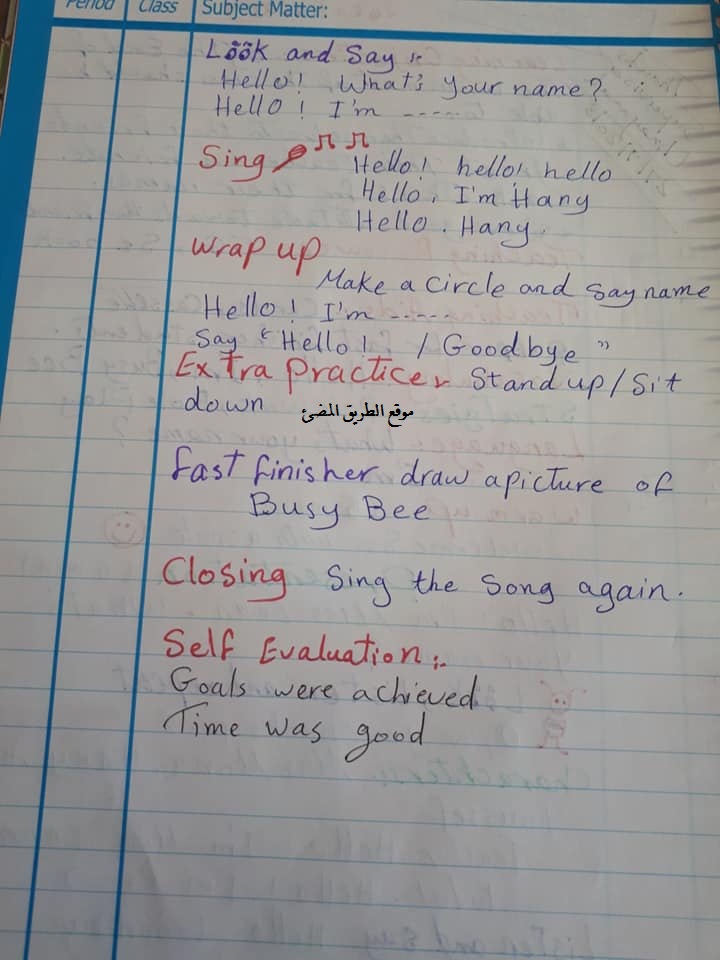 Period Class Subject Matter:
Look and Say :-
Hello! What's your name?
Hello! I'm ......
Sing Hello! hello! hello
Hello, I'm Hany
Hello. Hany.
Wrap up
Make a circle and say name
Hello! I'm ......
Say "Hello! / Goodbye"
Extra practice, Stand up / Sit
down
موقع الطريق المضئ
fast finisher draw a picture of
Busy Bee
Closing Sing the song again.
Self Evaluation :-
Goals were achieved
Time was good